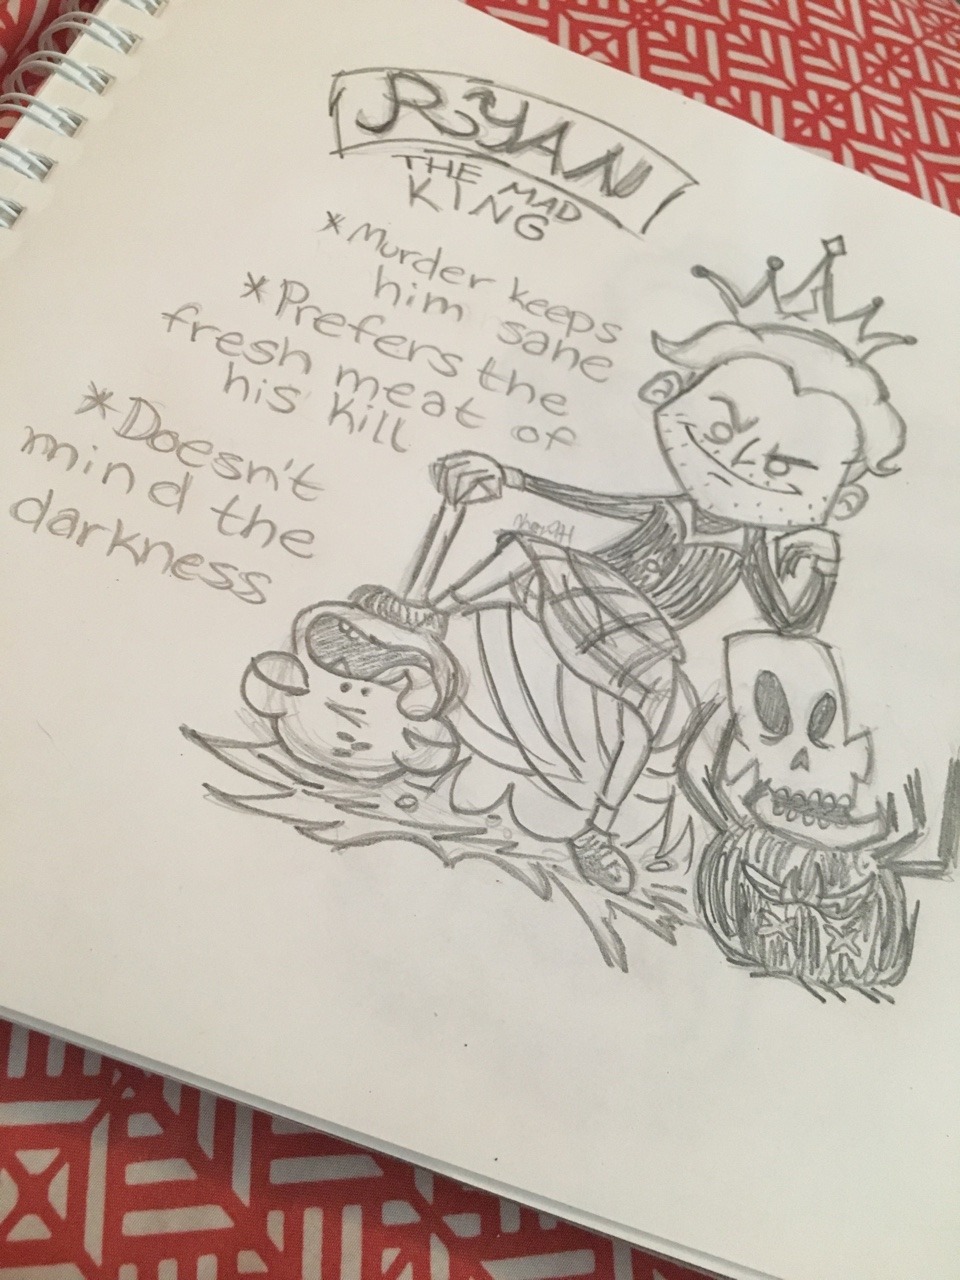 RYAN
THE MAD
KING
*Murder keeps
him sane
*Prefers the
fresh meat of
his kill
*Doesn't
mind the
darkness